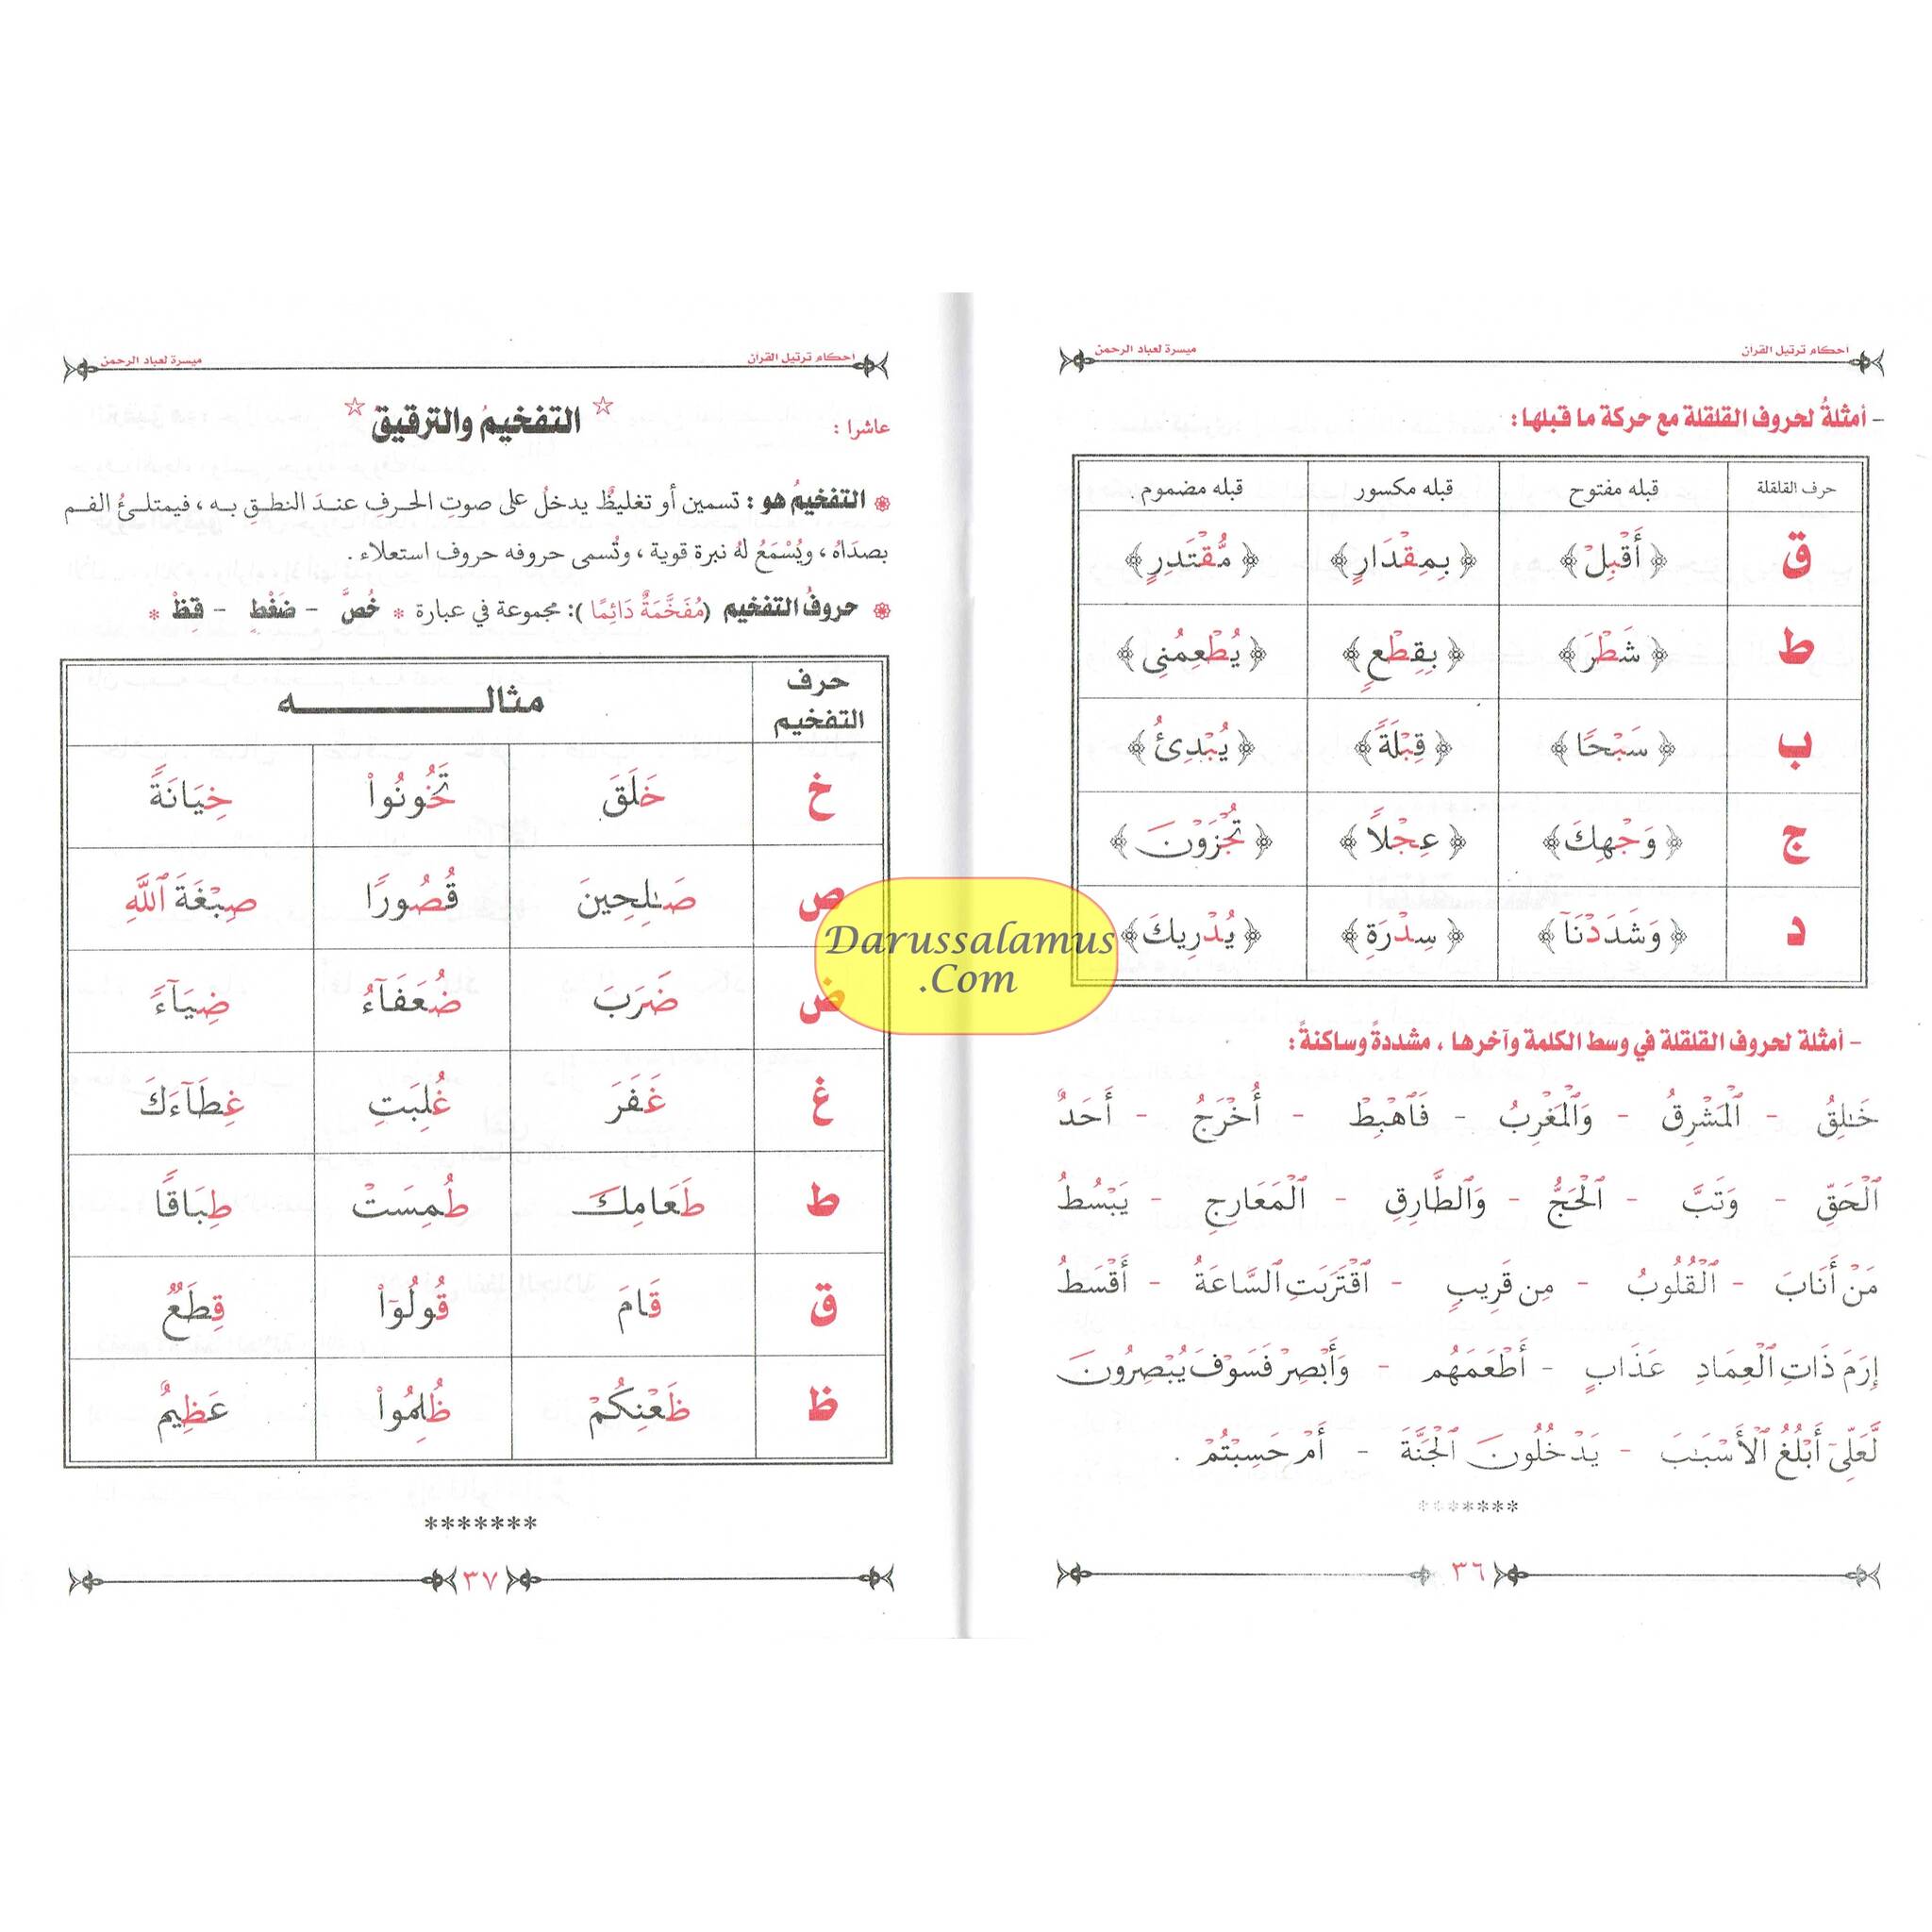 احكام ترتيل القرآن ميسرة لعباد الرحمن
- أمثلةُ لحروف القلقلة مع حركة ما قبلها :
حرف القلقلة قبله مفتوح قبله مكسور قبله مضموم .
ق ﴿ أَقْبِلْ ﴾ ﴿ بِمِقْدَارٍ ﴾ ﴿ مُّقْتَدِرٍ ﴾
ط ﴿ شَطْرَ ﴾ ﴿ بِقِطْعٍ ﴾ ﴿ يُطْعِمُنِى ﴾
ب ﴿ سَبْحًا ﴾ ﴿ قِبْلَةً ﴾ ﴿ يُبْدِئُ ﴾
ج ﴿ وَجْهِكَ ﴾ ﴿ عِجْلاً ﴾ ﴿ تُجْزَوْنَ ﴾
د ﴿ وَشَدَدْنَآ ﴾ ﴿ سِدْرَةِ ﴾ ﴿ يُدْرِيكَ ﴾
- أمثلة لحروف القلقلة في وسط الكلمة وآخرها ، مشددةً وساكنةً :
خَـٰلِقُ - ٱلْمَشْرِقُ - وَٱلْمَغْرِبُ - فَٱهْبِطْ - أُخْرَجُ - أَحَدٌ
ٱلْحَقِّ - وَتَبَّ - ٱلْحَجُّ - وَٱلطَّارِقِ - ٱلْمَعَارِجِ - يَبْسُطُ
مَنْ أَنَابَ - ٱلْقُلُوبُ - مِن قَرِيبٍ - ٱقْتَرَبَتِ ٱلسَّاعَةُ - أَقْسَطُ
إِرَمَ ذَاتِ ٱلْعِمَادِ عَذَابٍ - أَطْعَمَهُم - وَأَبْصِرْ فَسَوْفَ يُبْصِرُونَ
لَّعَلِّىٓ أَبْلُغُ ٱلْأَسْبَـٰبَ - يَدْخُلُونَ ٱلْجَنَّةَ - أَمْ حَسِبْتُمْ .
*******
٣٦
احكام ترتيل القرآن ميسرة لعباد الرحمن
عاشرا : ☆ التفخيمُ والترقيق ☆
التفخيمُ هو : تسمين أو تغليظٌ يدخلُ على صوتِ الحرف عندَ النطقِ به ، فيمتلئُ الفم
بصدَاهُ ، ويُسْمَعُ لهُ نبرة قوية ، وتُسمى حروفه حروف استعلاء .
حروفُ التفخيم (مُفَخَّمَةٌ دَائِمًا ): مجموعة في عبارة * خُصَّ - ضَغْطٍ - قِظْ *
حرف التفخيم مثالـــــــه
خ خَلَقَ تَخُونُوا۟ خِيَانَةً
ص صَـٰلِحِينَ قُصُورًا صِبْغَةَ ٱللَّهِ
ض ضَرَبَ ضُعَفَآءُ ضِيَآءً
غ غَفَرَ غُلِبَتِ غِطَآءَكَ
ط طَعَامِكَ طُمِسَتْ طِبَاقًا
ق قَامَ قُولُوٓا۟ قِطَعٌ
ظ ظَعْنِكُمْ ظُلِمُوا۟ عَظِيمٌ
*******
٣٧
Darussalamus
.Com